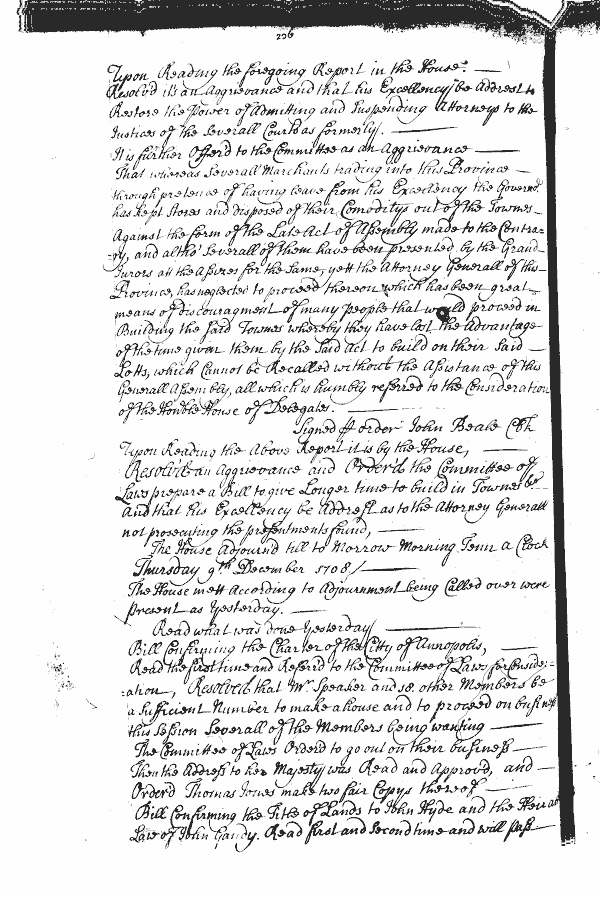 226
Upon Reading the foregoing Report in the House. —
Resolvd it's an Aggrievance and that his Excellency be Addrest to
Restore the Power of Admitting and Suspending Attorneys to the
Justices of the Severall Courts as formerly. —
It is further Offerd to the Committee as an Aggrievance —
That whereas Severall Merchants trading into this Province —
through pretence of having leave from his Excellency the Governor
has kept Stores and disposed of their Comoditys out of the Townes
Against the form of the Late Act of Assembly made to the Contra=
=ry, and altho' Severall of them have been presented by the Grand
Jurors att the Assizes for the Same, yett the Attorney Generall of this
Province, has neglected to proceed thereon which has been great
means of discouragment of many people that would proceed in
Building the said Townes whereby they have lost the Advantage
of the time given them by the Said Act to build on their Said
Lotts, which Cannot be Recalled without the Assistance of this
Generall Assembly, all which is humbly referred to the Consideration
of the Honble House of Delegates. —
Signed p order John Beale Clk
Upon Reading the Above Report it is by the House, —
Resolvd an Aggrievance and Orderd the Committee of
Laws prepare a Bill to give Longer time to build in Townes &c
And that his Excellency be Addrest as to the Attorney Generall
not prosecuting the presentments found, —
The House Adjournd till to Morrow Morning Tenn a Clock
Thursday 9th December 1708/ —
The House mett According to Adjournment being Called over were
present as Yesterday. —
Read what was done Yesterday/ —
Bill confirming the Charter of the Citty of Annapolis,
Read the first time and Referd to the Committee of Laws for Consider=
=ation, Resolved that Mr Speaker and 18. other Members be
a Sufficient Number to make a house and to proceed on business
this Session Severall of the Members being wanting —
The Committee of Laws Orderd to go out on their business —
Then the Address to her Majesty was Read and Approvd, and —
Orderd Thomas Jones make two fair Copys thereof —
Bill Confirming the Title of Lands to John Hyde and the Heir at
Law of John Gandy. Read first and Second time and will pass —